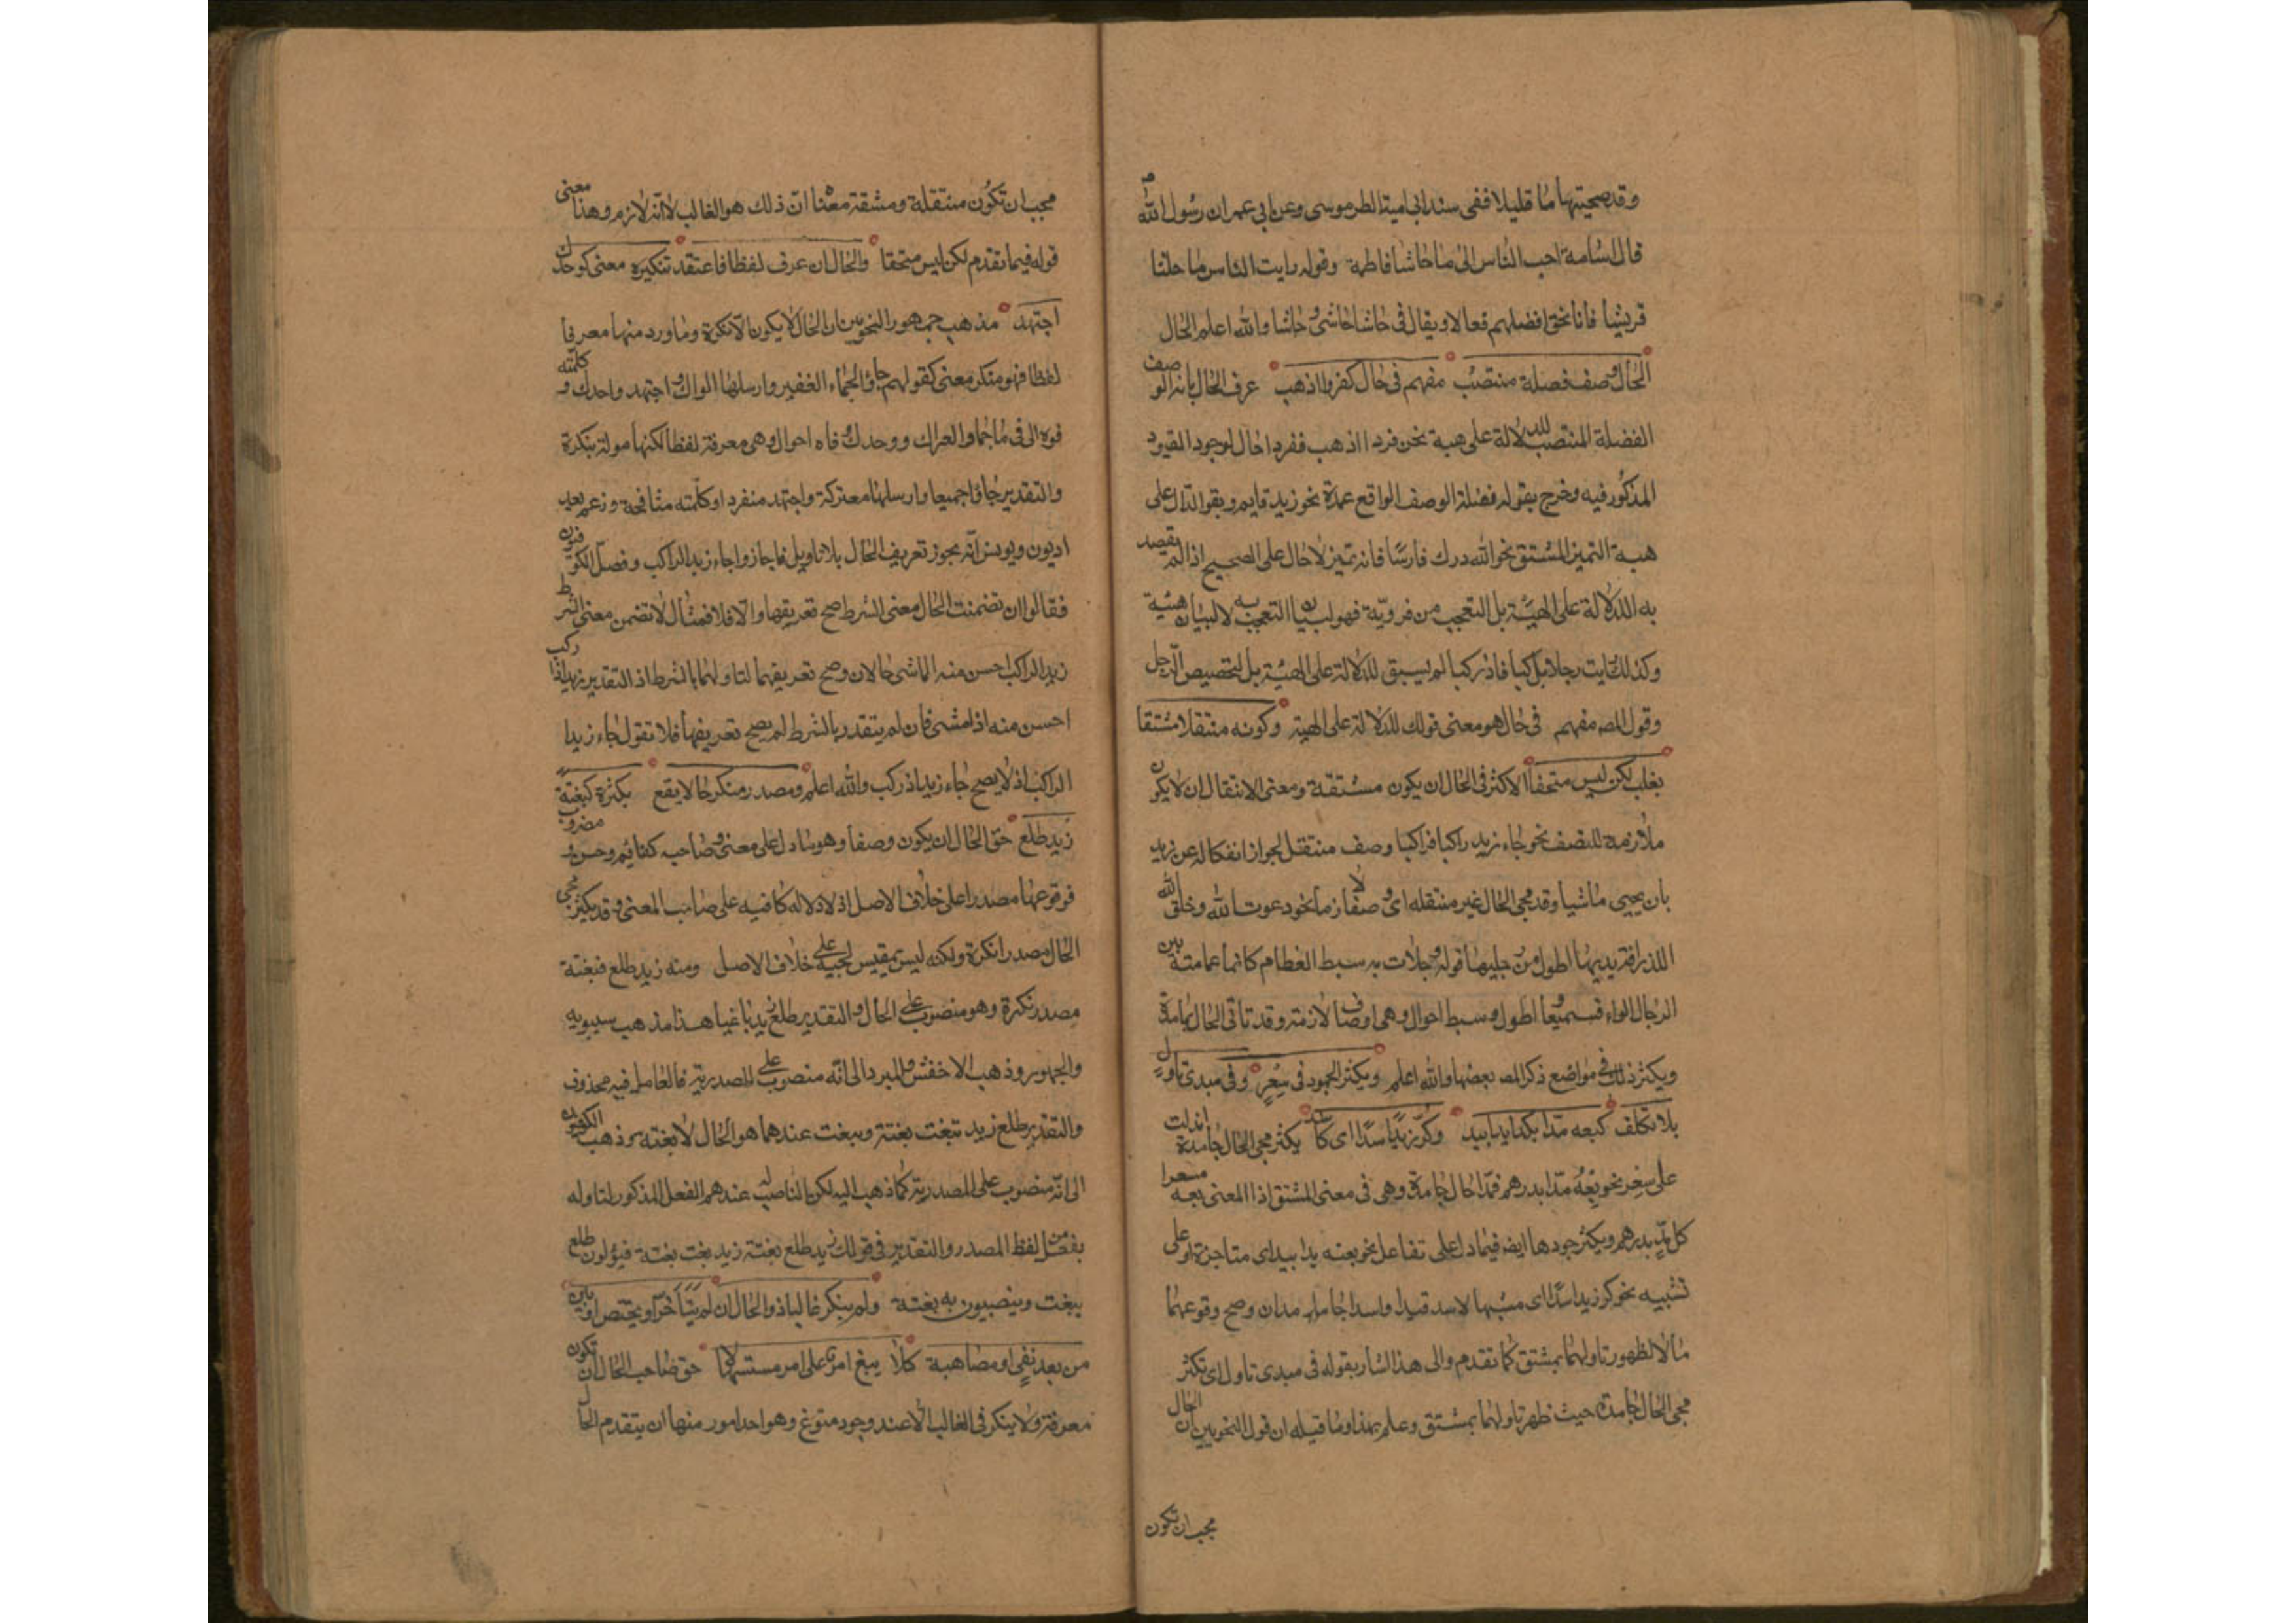 وقد صحبتها ما قليلا ففى مسند ابى امية الطرموسى وعن ابى عمر ان رسول الله ص
قال اسامة احب الناس الى ما حاشا فاطمة وقوله رايت الناس ما حاشا
قريشا فانا نحن افضلهم فعالا ويقال فى حاشا حاش وحاشا والله اعلم الحال
الحال وصف فضلة منتصب مفهم فى حال كفردا اذهب عرف الحال بانه الوصف
الفضلة المنتصب للدلالة على هيئة نحو فردا اذهب ففردا حال لوجود القيود
المذكور فيه وخرج بقوله فضلة الوصف الواقع عمدة نحو زيد قايم وبقو الدال على
هيئة التميز المشتق نحو لله درك فارسا فانه تميز لا حال على الصحيح اذ لم يقصد
به الدلالة على الهيئة بل التعجب من فروسية فهو لبيان التعجب به لا لبيان هيئة
وكذلك رايت رجلا راكبا فان راكبا لم يسبق للدلالة على الهيئة بل لتخصيص الرجل
وقول المصه مفهم فى حال هو معنى قولك للدلالة على الهيئة وكونه منتقلا مشتقا
يغلب لكن ليس مستحقا الاكثر فى الحال ان يكون مشتقة ومعنى الانتقال ان لا يكون
ملازمة للتصف نحو جاء زيد راكبا فراكبا وصف منتقل لجواز انفكاله عن زيد
بان يجيى ماشيا وقد مجى الحال غير منتقله اى وصفا لازما نحو دعوت الله وخلق الله
الذرافة يديها اطول من رجليها وقوله وجاءت به سبط العظام كانما عمامته بين
الرجال لواء فسميعا واطول وسبط احوال وهى اوصاف لازمة وقد تاتى الحال جامدة
ويكثر ذلك فى مواضع ذكر المصه بعضها والله اعلم ويكثر الجمود فى سعر وفى مبدى تاول
بلا تكلف كبعه مدا بكذا يدا بيد وكر زيد اسدا اى كاسد يكثر مجى الحال جامدة ان دلت
على سعر نحو بعه مدا بدرهم فمدا حال جامدة وهى فى معنى المشتق اذا المعنى بعه مسعرا
كل مد بدرهم ويكثر جمودها ايضه فيما دل على تفاعل نحو بعته يدا بيد اى متاجزة او على
تشبيه نحو كر زيد اسدا اى مشبها لاسد قيدا واسدا جامدان وصح وقوعهما
حالا لظهور تاولهما بمشتق كما تقدم والى هذا اشار بقوله فى مبدى تاول اى تكثر
مجى الحال جامدة حيث ظهر تاولها بمشتق وعلم بهذا وما قبله ان قول النحويين ان الحال
يجب ان تكون
يجب ان تكون منتقلة ومشتقة معناه ان ذلك هو الغالب لا انه لازم وهذا معنى
قوله فيما تقدم لكن ليس مستحقا والحال ان عرف لفظا فاعتقد تنكيره معنى كوحدك
اجتهد مذهب جمهور النحويين ان الحال لا يكون الا نكرة وما ورد منها معرفا
لفظا فهو منكر معنى كقولهم جاؤ الجماء الغفير وارسلها العراك واجتهد وحدك وكلمته
فوه الى فى فالجماء والعراك ووحدك وفاه احوال وهى معرفة لفظا لكنها مولة بنكرة
والتقدير جاؤا جميعا وارسلها معتركة واجتهد منفردا وكلمته مشافهة وزعم بغد
اديون ويونس انه يجوز تعريف الحال بلا تاويل فاجازوا جاء زيد الراكب وفصل الكوفيون
فقالوا ان تضمنت الحال معنى الشرط صح تعريفها والا فلا فمثال لا تضمن معنى الشرط
زيد الراكب احسن منه الماشى حالان وصح تعريفهما لتاولهما بالشرط اذ التقدير زيد اذا ركب
احسن منه اذا مشى فان لم يتقدر بالشرط لم يصح تعريفها فلا تقول جاء زيدا
الراكب اذ لا يصح جاء زيد اذ ركب والله اعلم ومصدر منكر حالا يقع بكثرة كبغتة
زيد طلع حق الحال ان يكون وصفا وهو ما دل على معنى وصاحبه كقائم وحسن ومضروب
فوقوعها مصدرا على خلاف الاصل اذ لا دلاله كافيه على صاحب المعنى وقد يكثر مجى
الحال مصدرا نكرة ولكنه ليس بمقيس لجيئه على خلاف الاصل ومنه زيد طلع فبغتة
مصدر نكرة وهو منصوب على الحال والتقدير طلع زيد باغيا هذا مذهب سيبويه
والجهور وذهب الاخفش والمبرد الى انه منصوب على المصدرية فالعامل فيه محذوف
والتقدير طلع زيد تبغت بغتة ويبغت عندهما هو الحال لا بغته وذهب الكوفيون
الى انه منصوب على المصدرية كما ذهب اليه لكن الناصب له عندهم الفعل المذكور لتاوله
بفعل من لفظ المصدر والتقدير فى قولك زيد طلع بغتة زيد بغت بغتة فيؤلون طلع
ببغت وينصبون به بغتة ولم ينكر غالبا ذو الحال ان لم يتاخر او يختص او يبن
من بعد نفى او مضاهية كلا يبغ امرؤ على امر مستسهلا حق صاحب الحال ان تكون
معرفة ولا ينكر فى الغالب الا عند وجود متوغ وهو احد امور منها ان يتقدم الحال